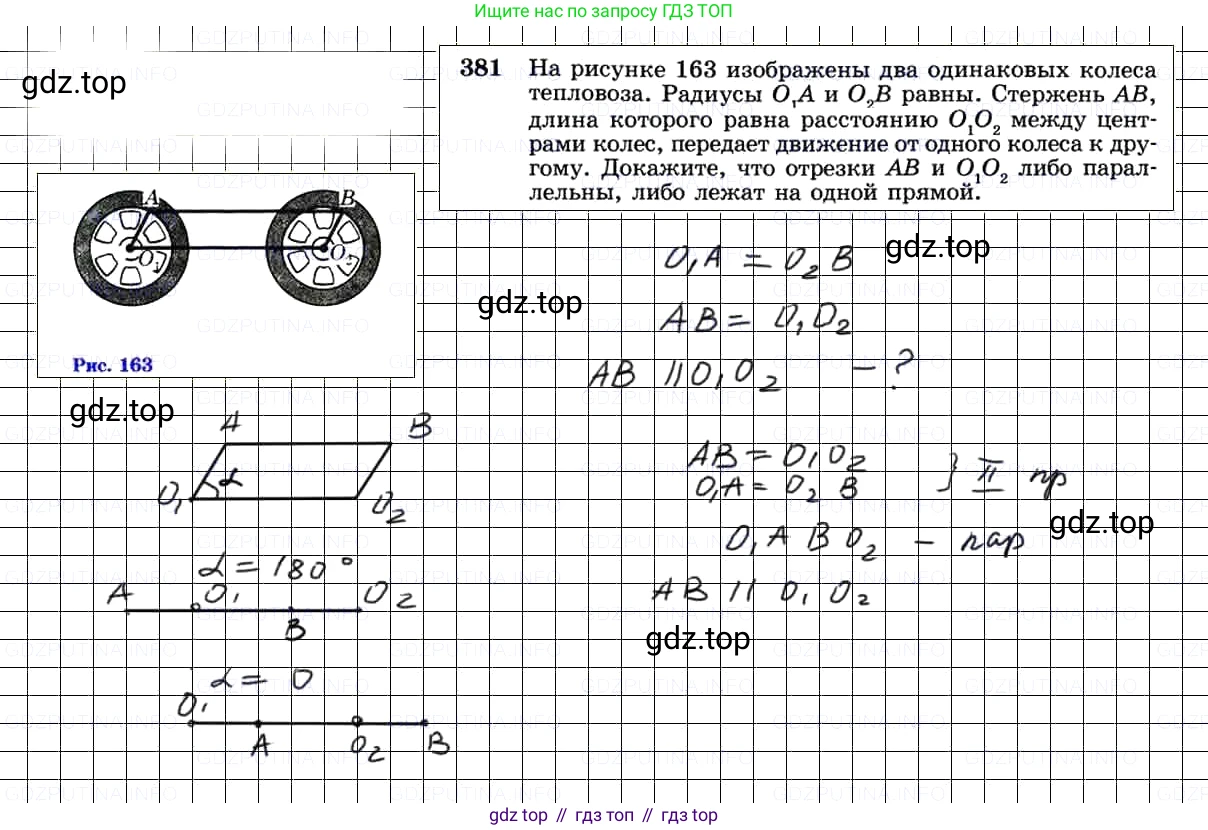 Ищите нас по запросу ГДЗ ТОП
gdz.top
381 На рисунке 163 изображены два одинаковых колеса
тепловоза. Радиусы O₁A и O₂B равны. Стержень AB,
длина которого равна расстоянию O₁O₂ между цент-
рами колес, передает движение от одного колеса к дру-
гому. Докажите, что отрезки AB и O₁O₂ либо парал-
лельны, либо лежат на одной прямой.
A B
O₁ O₂
Рис. 163
O₁A = O₂B
gdz.top
gdz.top
AB = O₁O₂
AB || O₁O₂ – ?
gdz.top
A B
α
O₁ O₂
AB = O₁O₂
O₁A = O₂B } II пр
gdz.top
O₁ABO₂ – пар
AB || O₁O₂
gdz.top
α = 180°
A O₁ O₂
B
α = 0
O₁
A O₂ B
gdz top // гдз топ // gdz top
GDZPUTINA.INFO